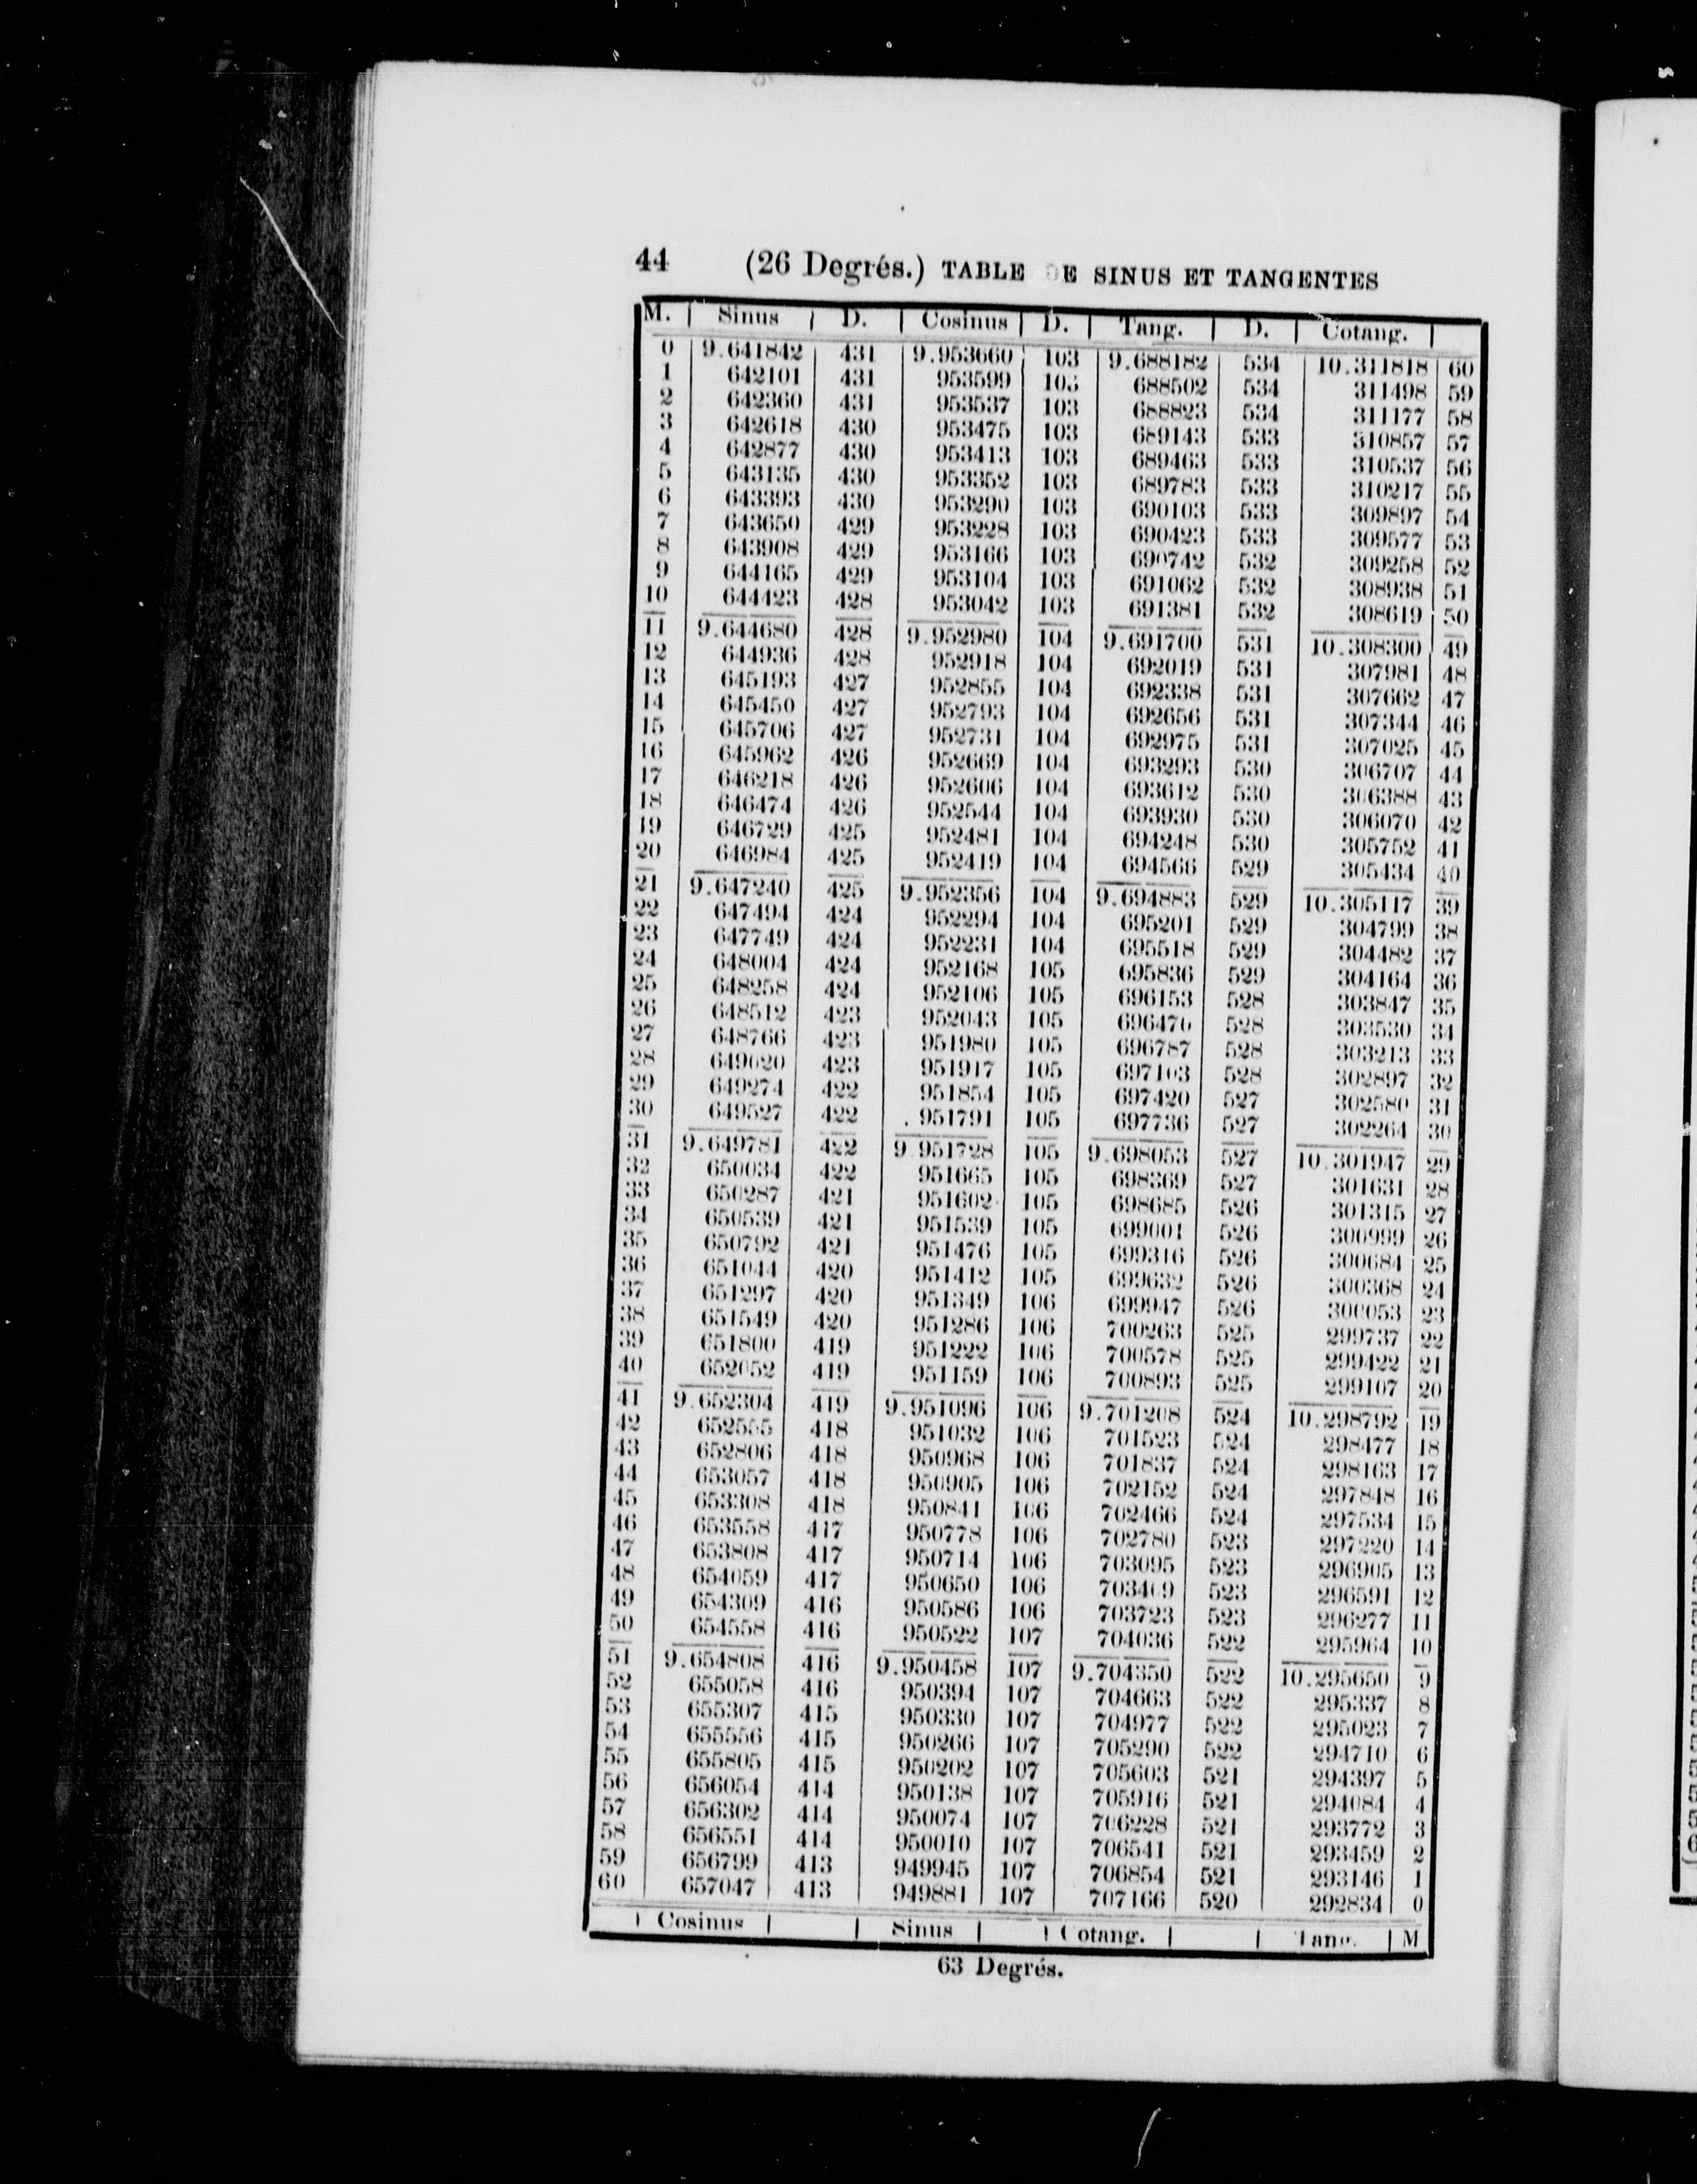 44 (26 Degrés.) TABLE DE SINUS ET TANGENTES
M. Sinus D. Cosinus D. Tang. D. Cotang.
0 9.641842 431 9.953660 103 9.688182 534 10.311818 60
1 642101 431 953599 103 688502 534 311498 59
2 642360 431 953537 103 688823 534 311177 58
3 642618 430 953475 103 689143 533 310857 57
4 642877 430 953413 103 689463 533 310537 56
5 643135 430 953352 103 689783 533 310217 55
6 643393 430 953290 103 690103 533 309897 54
7 643650 429 953228 103 690423 533 309577 53
8 643908 429 953166 103 690742 532 309258 52
9 644165 429 953104 103 691062 532 308938 51
10 644423 428 953042 103 691381 532 308619 50
11 9.644680 428 9.952980 104 9.691700 531 10.308300 49
12 644936 428 952918 104 692019 531 307981 48
13 645193 427 952855 104 692338 531 307662 47
14 645450 427 952793 104 692656 531 307344 46
15 645706 427 952731 104 692975 531 307025 45
16 645962 426 952669 104 693293 530 306707 44
17 646218 426 952606 104 693612 530 306388 43
18 646474 426 952544 104 693930 530 306070 42
19 646729 425 952481 104 694248 530 305752 41
20 646984 425 952419 104 694566 529 305434 40
21 9.647240 425 9.952356 104 9.694883 529 10.305117 39
22 647494 424 952294 104 695201 529 304799 38
23 647749 424 952231 104 695518 529 304482 37
24 648004 424 952168 105 695836 529 304164 36
25 648258 424 952106 105 696153 528 303847 35
26 648512 423 952043 105 696470 528 303530 34
27 648766 423 951980 105 696787 528 303213 33
28 649020 423 951917 105 697103 528 302897 32
29 649274 422 951854 105 697420 527 302580 31
30 649527 422 951791 105 697736 527 302264 30
31 9.649781 422 9.951728 105 9.698053 527 10.301947 29
32 650034 422 951665 105 698369 527 301631 28
33 650287 421 951602 105 698685 526 301315 27
34 650539 421 951539 105 699001 526 300999 26
35 650792 421 951476 105 699316 526 300684 25
36 651044 420 951412 105 699632 526 300368 24
37 651297 420 951349 106 699947 526 300053 23
38 651549 420 951286 106 700263 525 299737 22
39 651800 419 951222 106 700578 525 299422 21
40 652052 419 951159 106 700893 525 299107 20
41 9.652304 419 9.951096 106 9.701208 524 10.298792 19
42 652555 418 951032 106 701523 524 298477 18
43 652806 418 950968 106 701837 524 298163 17
44 653057 418 950905 106 702152 524 297848 16
45 653308 418 950841 106 702466 524 297534 15
46 653558 417 950778 106 702780 523 297220 14
47 653808 417 950714 106 703095 523 296905 13
48 654059 417 950650 106 703409 523 296591 12
49 654309 416 950586 106 703723 523 296277 11
50 654558 416 950522 107 704036 522 295964 10
51 9.654808 416 9.950458 107 9.704350 522 10.295650 9
52 655058 416 950394 107 704663 522 295337 8
53 655307 415 950330 107 704977 522 295023 7
54 655556 415 950266 107 705290 522 294710 6
55 655805 415 950202 107 705603 521 294397 5
56 656054 414 950138 107 705916 521 294084 4
57 656302 414 950074 107 706228 521 293772 3
58 656551 414 950010 107 706541 521 293459 2
59 656799 413 949945 107 706854 521 293146 1
60 657047 413 949881 107 707166 520 292834 0
Cosinus Sinus Cotang. Tang. M
63 Degrés.